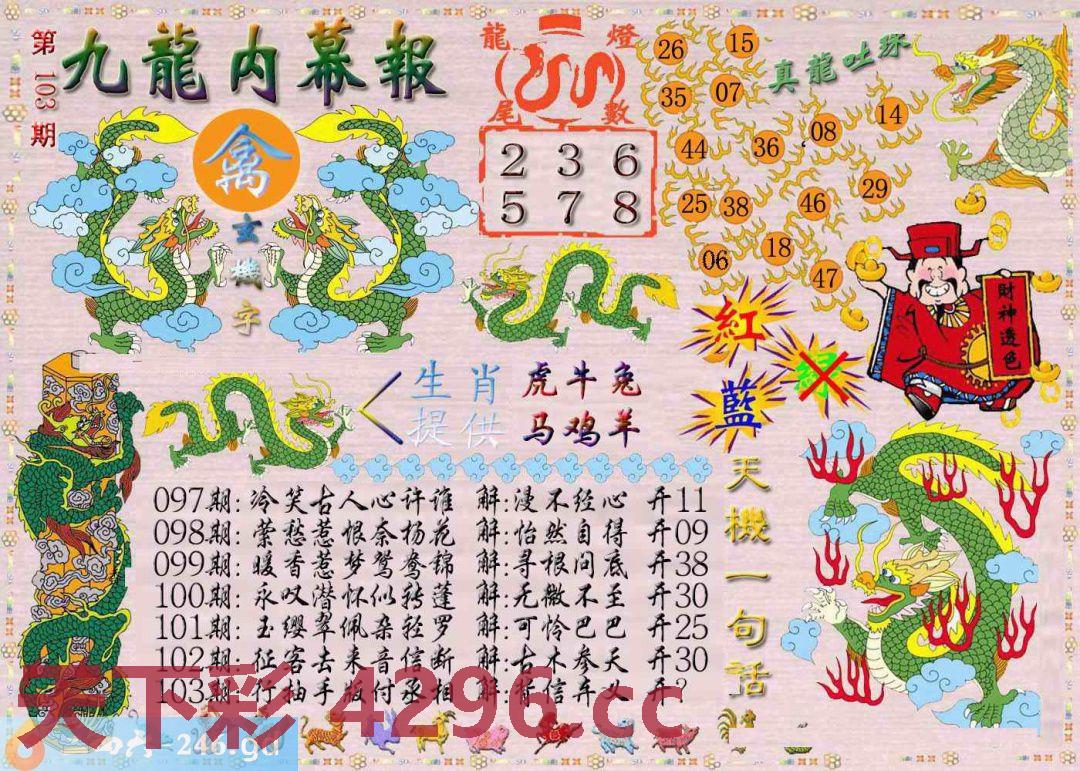 第103期
九龍内幕報
禽
玄機字
龍燈
尾數
2 3 6
5 7 8
真龍吐珠
26 15
35 07
44 36 08 14
25 38 46 29
06 18 47
紅
綠
藍
財神透色
生肖 虎牛兔
提供 马鸡羊
天機一句話
097期:冷笑古人心许谁 解:漫不经心 开11
098期:萦愁惹恨奈杨花 解:怡然自得 开09
099期:暖香惹梦鸳鸯锦 解:寻根问底 开38
100期:永叹潜怀似转蓬 解:无微不至 开30
101期:玉缨翠佩杂轻罗 解:可怜巴巴 开25
102期:征客去来音信断 解:古木参天 开30
103期:行抽手版付丞相 解:背信弃义 开?
天下彩 4296.cc
=246.gd